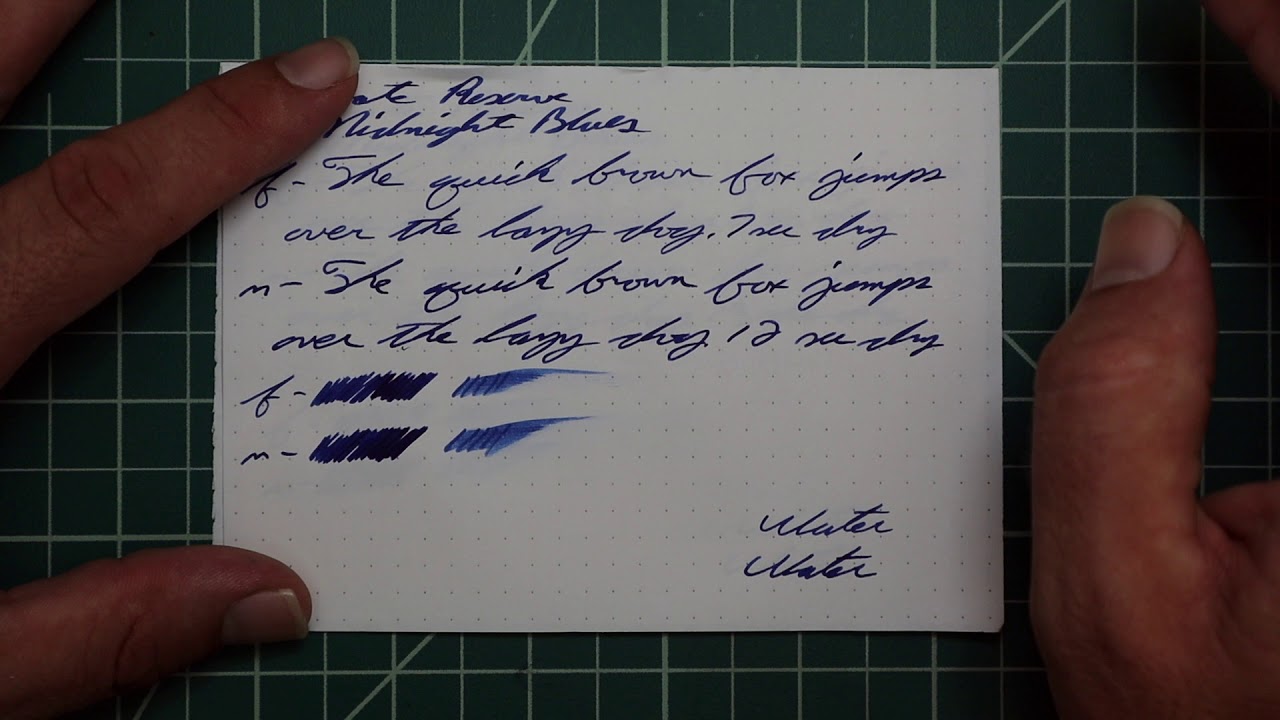 ate Reserve
Midnight Blues
f - The quick brown fox jumps
over the lazy dog. 7 sec dry
m - The quick brown fox jumps
over the lazy dog 12 sec dry
f -
m -
Water
Water